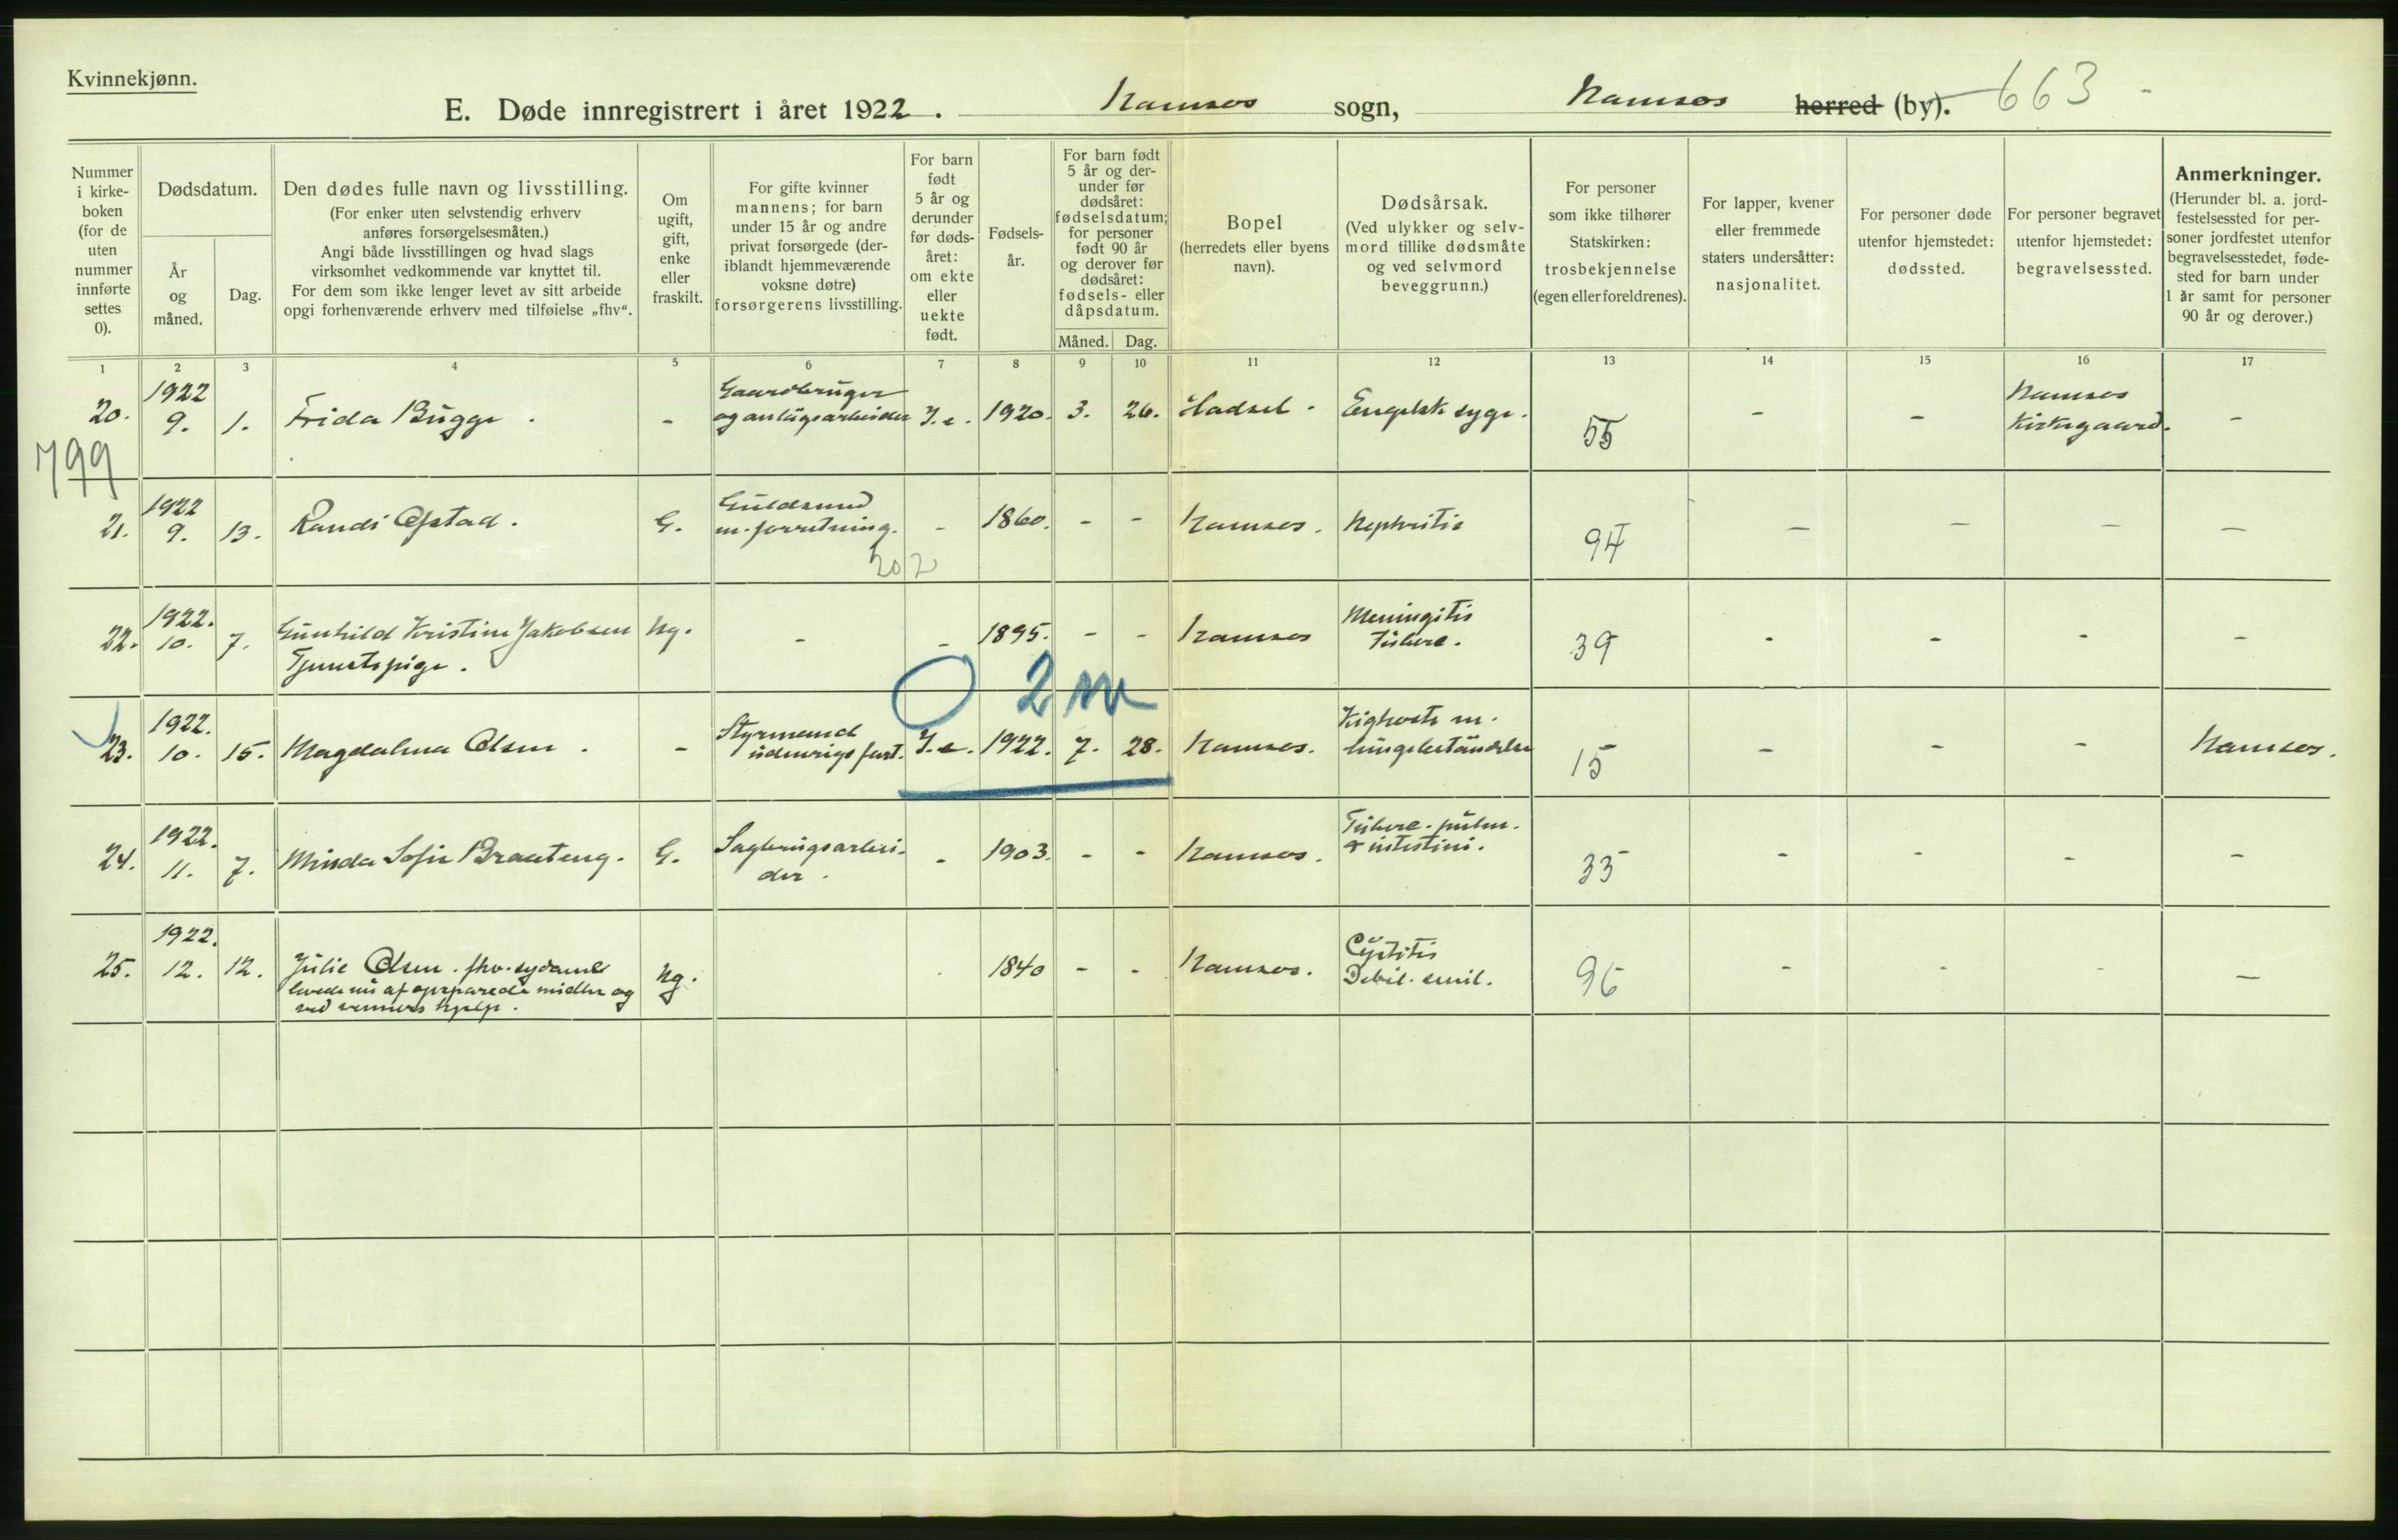 Kvinnekjønn.
E. Døde innregistrert i året 1922. Namsos sogn, Namsos herred (by). 663 -
Nummer i kirke-boken (for de uten nummer innførte settes 0).
Dødsdatum.
År og måned.
Dag.
Den dødes fulle navn og livsstilling.
(For enker uten selvstendig erhverv
anføres forsørgelsesmåten.)
Angi både livsstillingen og hvad slags
virksomhet vedkommende var knyttet til.
For dem som ikke lenger levet av sitt arbeide
opgi forhenværende erhverv med tilføielse „fhv“.
Om
ugift,
gift,
enke
eller
fraskilt.
For gifte kvinner
mannens; for barn
under 15 år og andre
privat forsørgede (der-
iblandt hjemmeværende
voksne døtre)
forsørgerens livsstilling.
For barn
født
5 år og
derunder
før døds-
året:
om ekte
eller
uekte
født.
Fødsels-
år.
For barn født
5 år og der-
under før
dødsåret:
fødselsdatum;
for personer
født 90 år
og derover før
dødsåret:
fødsels- eller
dåpsdatum.
Måned. Dag.
Bopel
(herredets eller byens
navn).
Dødsårsak.
(Ved ulykker og selv-
mord tillike dødsmåte
og ved selvmord
beveggrunn.)
For personer
som ikke tilhører
Statskirken:
trosbekjennelse
(egen eller foreldrenes).
For lapper, kvener
eller fremmede
staters undersåtter:
nasjonalitet.
For personer døde
utenfor hjemstedet:
dødssted.
For personer begravet
utenfor hjemstedet:
begravelsessted.
Anmerkninger.
(Herunder bl. a. jord-
festelsessted for per-
soner jordfestet utenfor
begravelsesstedet, føde-
sted for barn under
1 år samt for personer
90 år og derover.)
1 2 3 4 5 6 7 8 9 10 11 12 13 14 15 16 17
20. 1922 9. 1. Frida Bugge. - Gaardbruger
og anlægsarbeider I. e. 1920. 3. 26. Hadsel. Engelsk syge. 55 - - Namsos
Kirkegaard. -
799
21. 1922 9. 13. Randi Ofstad. G. Guldsmed
m. forretning. - 1860. - - Namsos. Nephritis 94 - - - -
202
22. 1922. 10. 7. Gunhild Kristine Jakobsen
Tjenestepige. Ug. - - 1895. - - Namsos Meningitis
Tuberc. 39 - - - -
0 2 m
23. 1922. 10. 15. Magdalena Olsen. - Styrmand
udenrigs fart. I. e. 1922. 7. 28. Namsos. Kighoste m.
lungebetændelse 15 - - - Namsos.
24. 1922. 11. 7. Minda Sofie Braateng. G. Sagbrugsarbei-
der. - 1903. - - Namsos. Tuberc. pulm.
& intestini. 33 - - - -
25. 1922. 12. 12. Julie Olsen. fhv. sydame
levede nu af opsparede midler og
ved venners hjelp. Ug. 1840 - - Namsos. Cystitis
Debil. senil. 96 - - - -